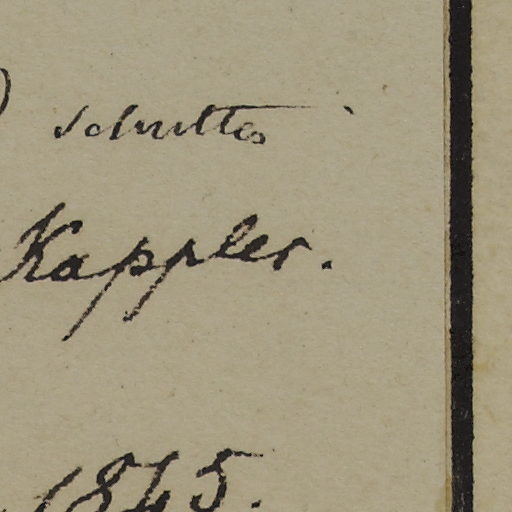 Schultes
Kappler.
1845.